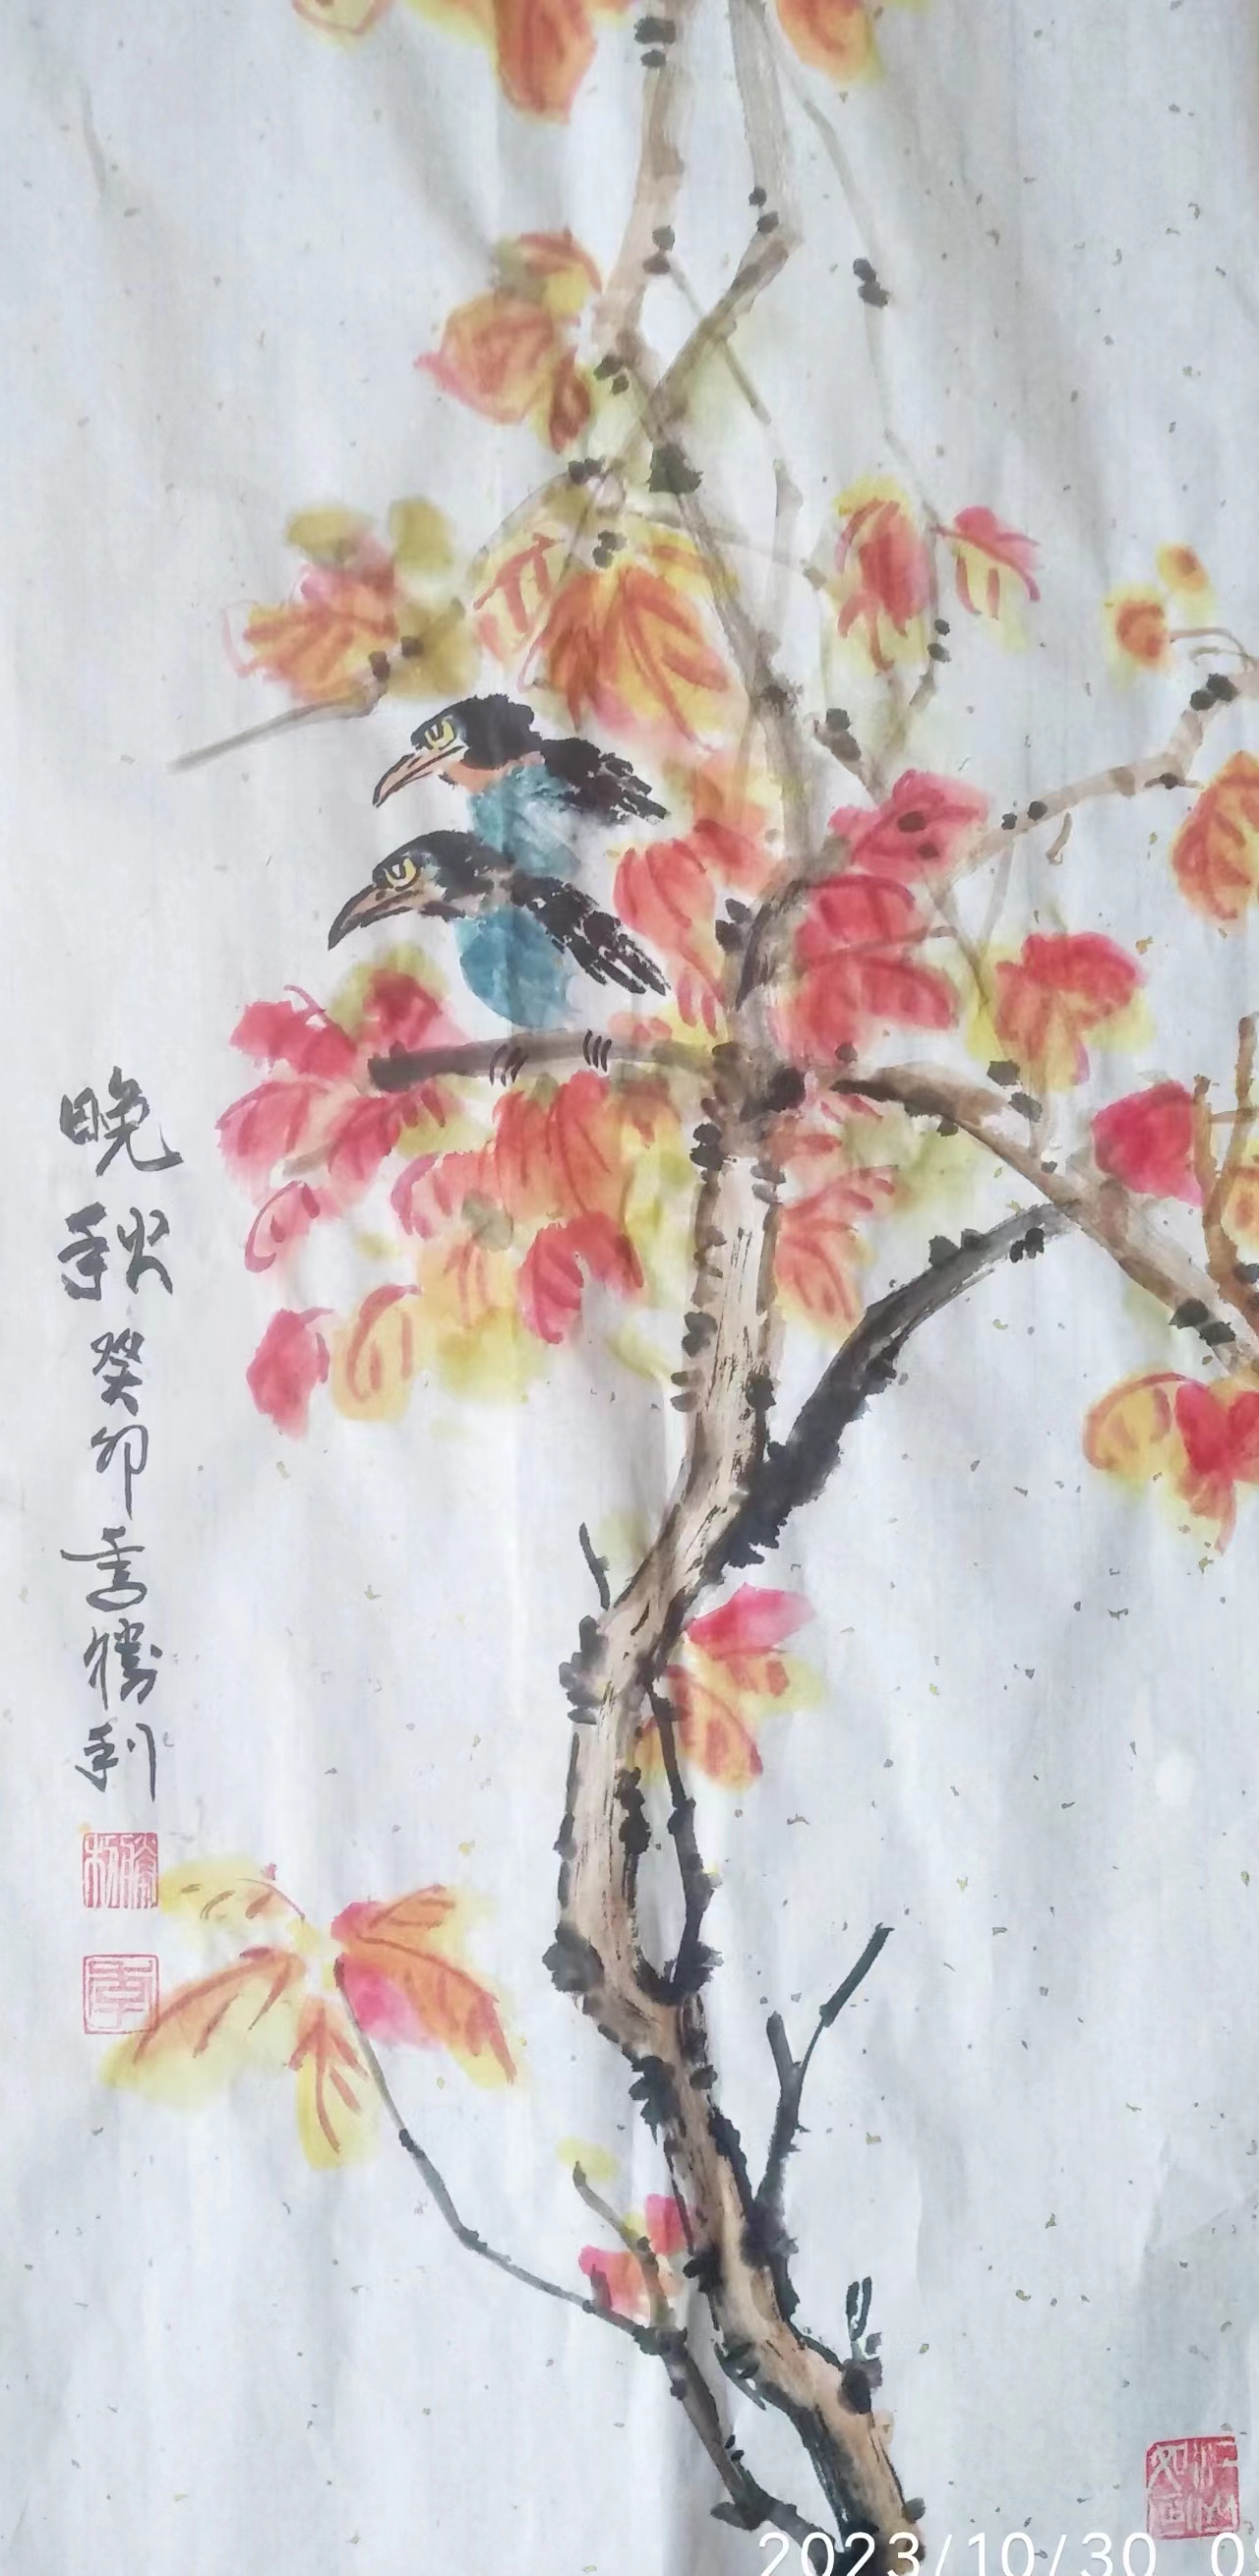 晚秋 癸卯 季勝利
2023/10/30 0